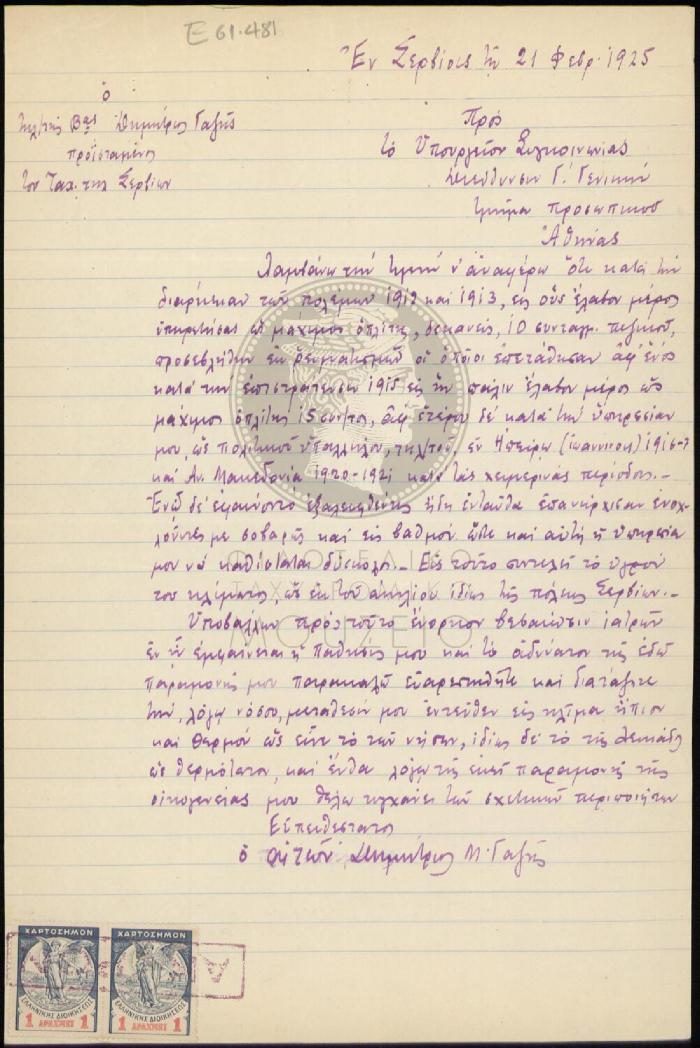 E 61.481
Ἐν Σερβίοις τῇ 21 Φεβρ. 1925
ὁ
τηλ/τὴς Βας Δημήτριος Γαζῆς
προϊστάμενος
του Ταχ. τηλ Σερβίων
Πρὸς
τὸ Ὑπουργεῖον Συγκοινωνίας
Διεύθυνσιν Γ' Γενικὴν
τμῆμα προσωπικοῦ
Ἀθήνας
Λαμβάνω τὴν τιμὴν ν' ἀναφέρω ὅτι κατὰ τὴν
διάρκειαν τῶν πολέμων 1912 καὶ 1913, εἰς οὓς ἔλαβον μέρος
ὑπηρετήσας ὡς μάχιμος ὁπλίτης, δεκανεύς, 10 συνταγμ. πεζικοῦ,
προσεβλήθην ἐκ ρευματισμῶν οἱ ὁποῖοι ἐπετάθησαν ἀφ' ἑνὸς
κατὰ τὴν ἐπιστράτευσιν 1915 εἰς ἣν πάλιν ἔλαβον μέρος ὡς
μάχιμος ὁπλίτης 15 συν/τος, ἀφ' ἑτέρου δὲ κατὰ τὴν ὑπηρεσίαν
μου, ὡς πολιτικοῦ ὑπαλλήλου, τηλ/τοῦ, ἐν Ἠπείρῳ (Ἰωαννίνοις) 1916-7
καὶ Αν. Μακεδονία 1920-1921 κατὰ τὰς χειμερινὰς περιόδους.-
Ἐνῷ δὲ ἐφαίνοντο ἐξαλειφθέντες ἤδη ἐνταῦθα ἐπανήρχισαν ἐνοχ-
λοῦντές με σοβαρῶς καὶ εἰς βαθμὸν ὥστε καὶ αὐτὴ ἡ ὑπηρεσία
μου νὰ καθίσταται δύσκολος.- Εἰς τοῦτο συντελεῖ τὸ ὑγρὸν
του κλίματος, ὡς ἐκ τοῦ ἀνηλίου ἰδίως τῆς πόλεως Σερβίων.-
Ὑποβάλλων πρὸς τοῦτο ἔνορκον βεβαίωσιν ἰατρῶν
ἐν ᾗ ἐμφαίνεται ἡ πάθησίς μου καὶ τὸ ἀδύνατον τῆς ἐδῶ
παραμονῆς μου παρακαλῶ εὐαρεστηθῆτε καὶ διατάξητε
τὴν, λόγῳ νόσου, μετάθεσίν μου ἐντεῦθεν εἰς κλῖμα ἤπιον
καὶ θερμὸν ὡς εἶνε τὸ τῶν νήσων, ἰδίως δὲ τὸ τῆς Λευκάδος
ὡς θερμότατον, καὶ ἔνθα λόγῳ τῆς ἐκεῖ παραμονῆς τῆς
οἰκογενείας μου θέλω τυγχάνει τῶν σχετικῶν περιποιήσεων
Εὐπειθέστατος
ὁ αἰτῶν Δημήτριος Μ. Γαζῆς
ΦΙΛΟΤΕΛΙΚΟ
ΤΑΧΥΔΡΟΜΙΚΟ
ΜΟΥΣΕΙΟ
ΧΑΡΤΟΣΗΜΟΝ ΧΑΡΤΟΣΗΜΟΝ
ΕΛΛΗΝΙΚΗΣ ΔΙΟΙΚΗΣΕΩΣ ΕΛΛΗΝΙΚΗΣ ΔΙΟΙΚΗΣΕΩΣ
1 ΔΡΑΧΜΗ 1 1 ΔΡΑΧΜΗ 1